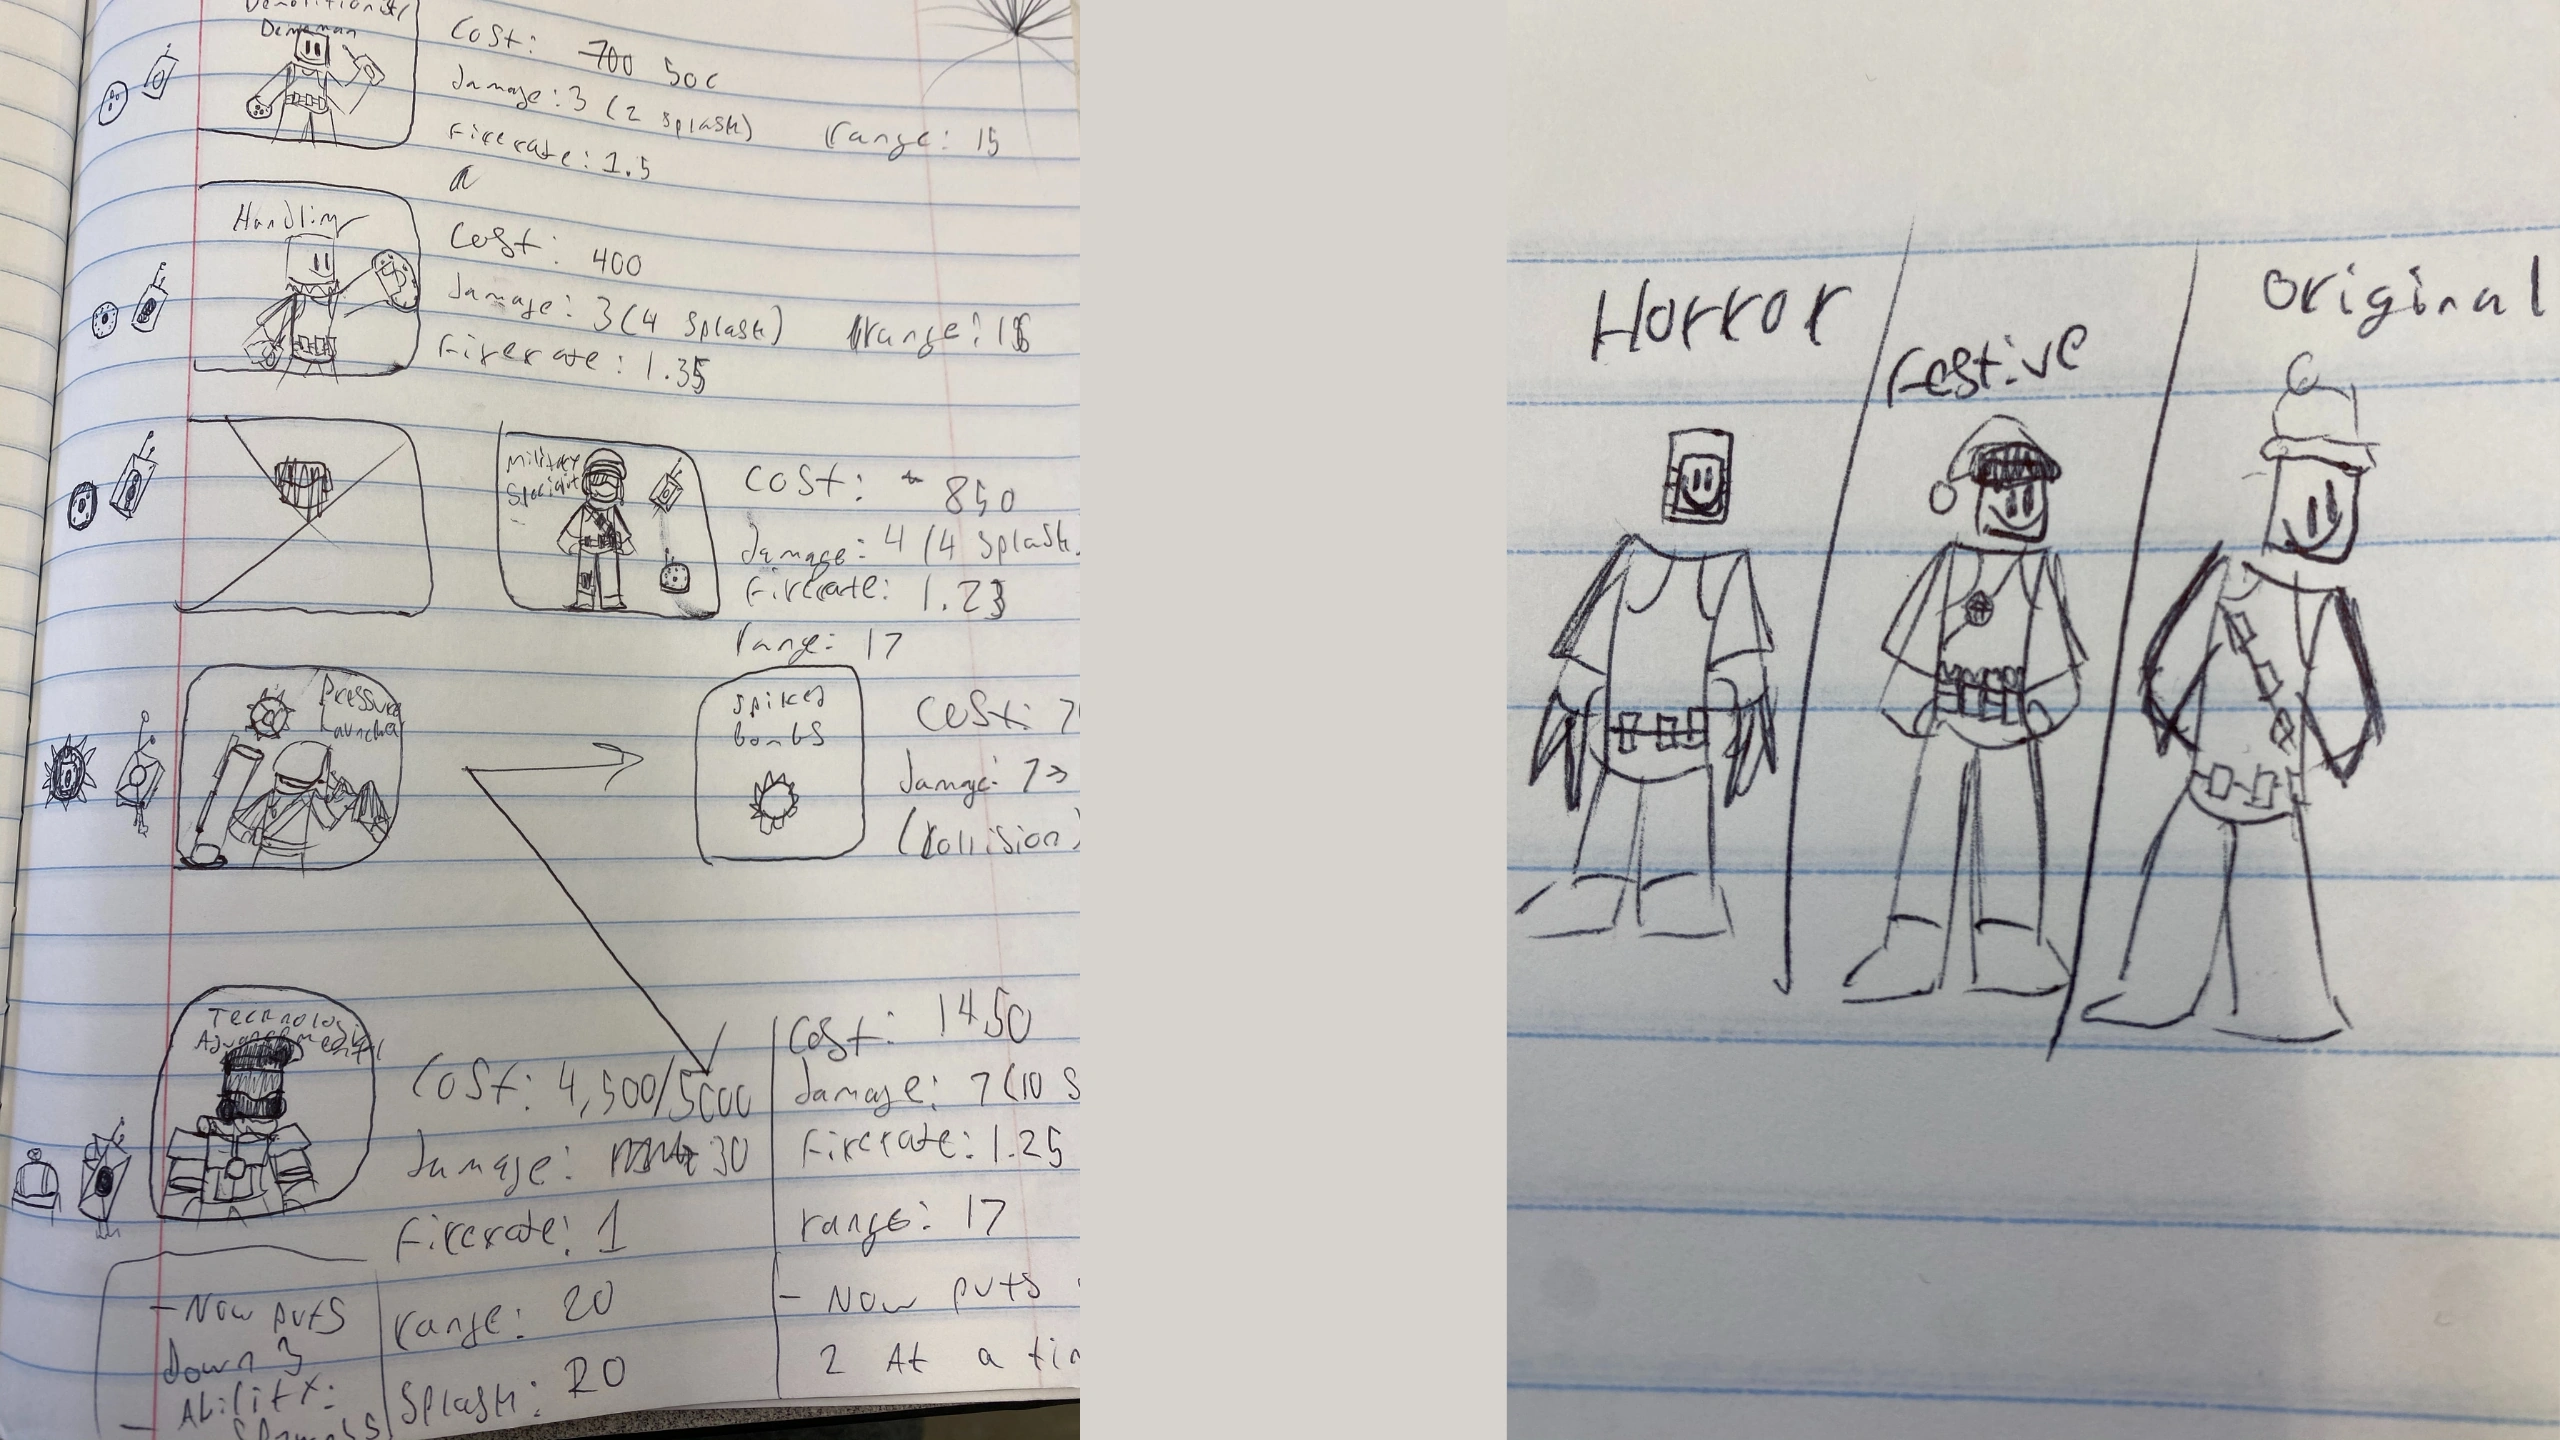 Demolitionist/
Demoman
Cost: 700 500
Damage: 3 (2 splash)
range: 15
Firerate: 1.5
Handling
Cost: 400
Damage: 3 (4 splash)
range: 16
Firerate: 1.35
Military
Cost: 850
Damage: 4 (4 splash
Firerate: 1.23
range: 17
Pressure
Launcher
spikes
bombs
Cost: 7
Damage: 7
(collision)
Cost: 1450
Damage: 7 (10 s
Firerate: 1.25
range: 17
- Now puts
2 At a tim
Cost: 4,500/5000
Damage: 30
Firerate: 1
range: 20
Splash: 20
- Now puts
Down 3
- Ability:
Horror
Festive
Original